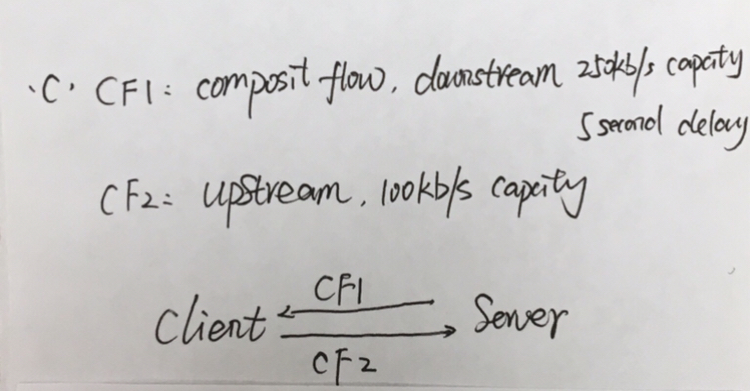 'C' CF1: composit flow, downstream 250kb/s capcity
5 second delay
CF2: upstream, 100kb/s capcity
CF1
Client Server
CF2